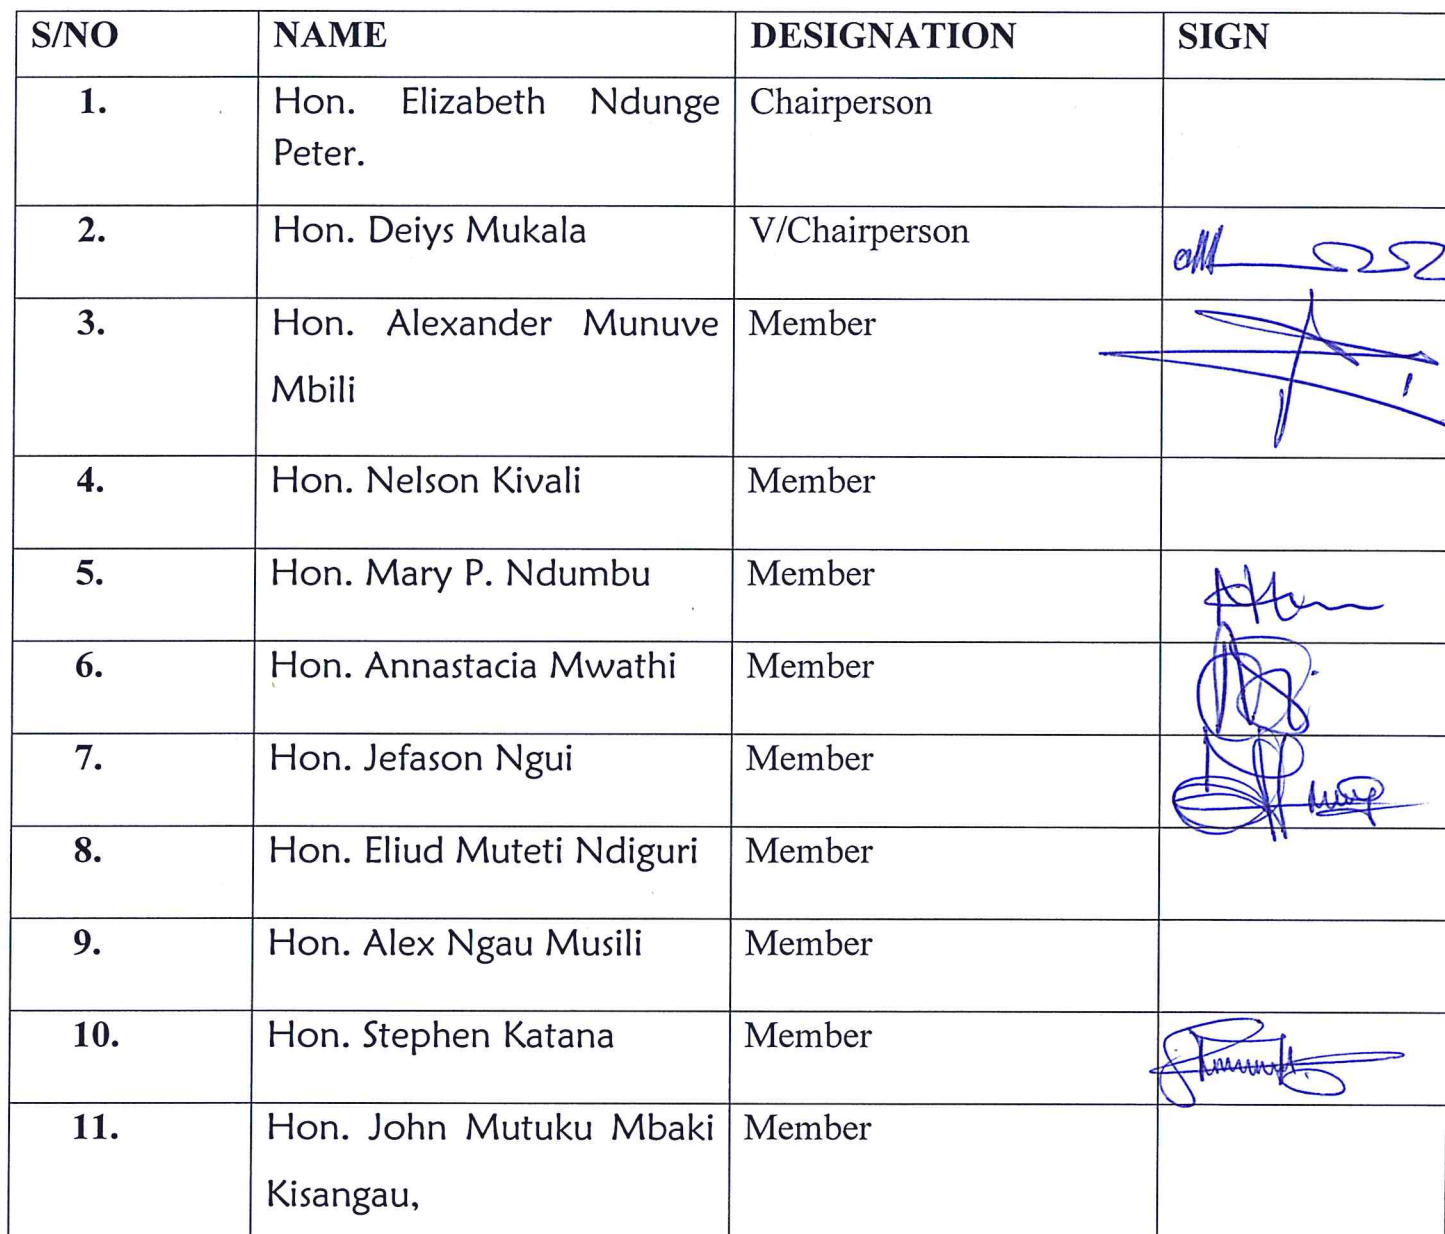 S/NO NAME DESIGNATION SIGN
1. Hon. Elizabeth Ndunge Chairperson
Peter.
2. Hon. Deiys Mukala V/Chairperson
3. Hon. Alexander Munuve Member
Mbili
4. Hon. Nelson Kivali Member
5. Hon. Mary P. Ndumbu Member
6. Hon. Annastacia Mwathi Member
7. Hon. Jefason Ngui Member
8. Hon. Eliud Muteti Ndiguri Member
9. Hon. Alex Ngau Musili Member
10. Hon. Stephen Katana Member
11. Hon. John Mutuku Mbaki Member
Kisangau,